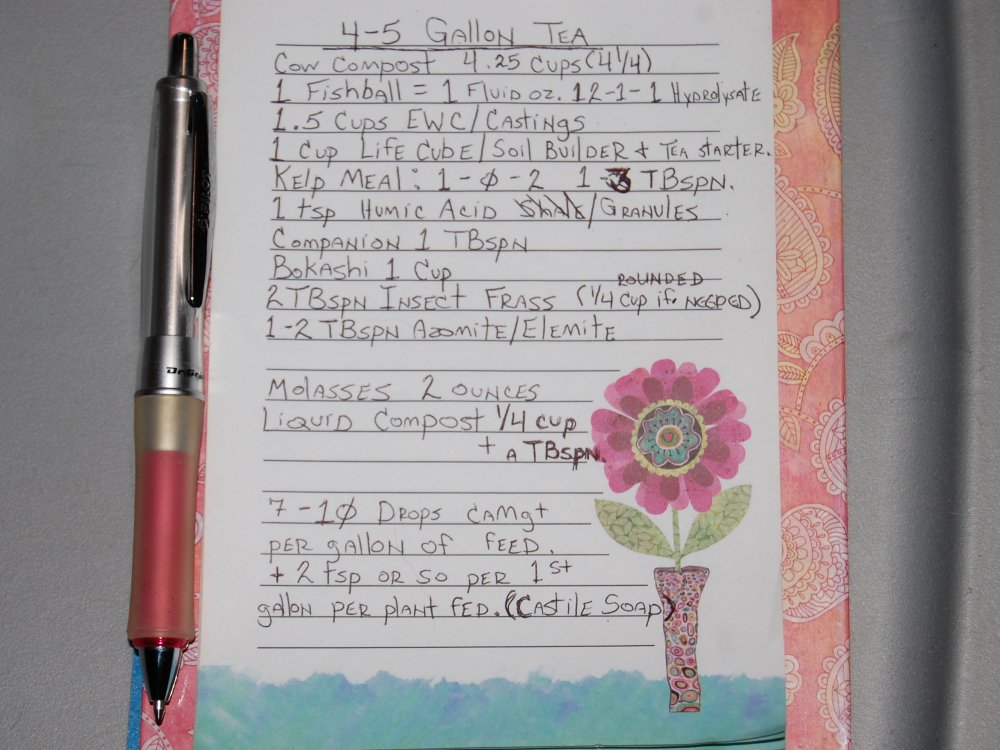 4-5 GALLON TEA
COW COMPOST 4.25 CUPS (4 1/4)
1 FISHBALL = 1 FLUID OZ. 12-1-1 HYDROLYSATE
1.5 CUPS EWC/CASTINGS
1 CUP LIFE CUBE/SOIL BUILDER + TEA STARTER.
KELP MEAL: 1-Ø-2 1 TBSPN.
1 tsp HUMIC ACID /GRANULES
COMPANION 1 TBSPN
BOKASHI 1 CUP
ROUNDED
2 TBSPN INSECT FRASS (1/4 CUP if NEEDED)
1-2 TBSPN AZOMITE/ELEMITE
MOLASSES 2 OUNCES
LIQUID COMPOST 1/4 CUP
+ A TBSPN.
7-1Ø DROPS CAMg+
PER gALLON OF FEED.
+ 2 tsp OR SO PER 1st
gallon PER PLANT FED. (CASTILE SOAP)
Dr.Gr